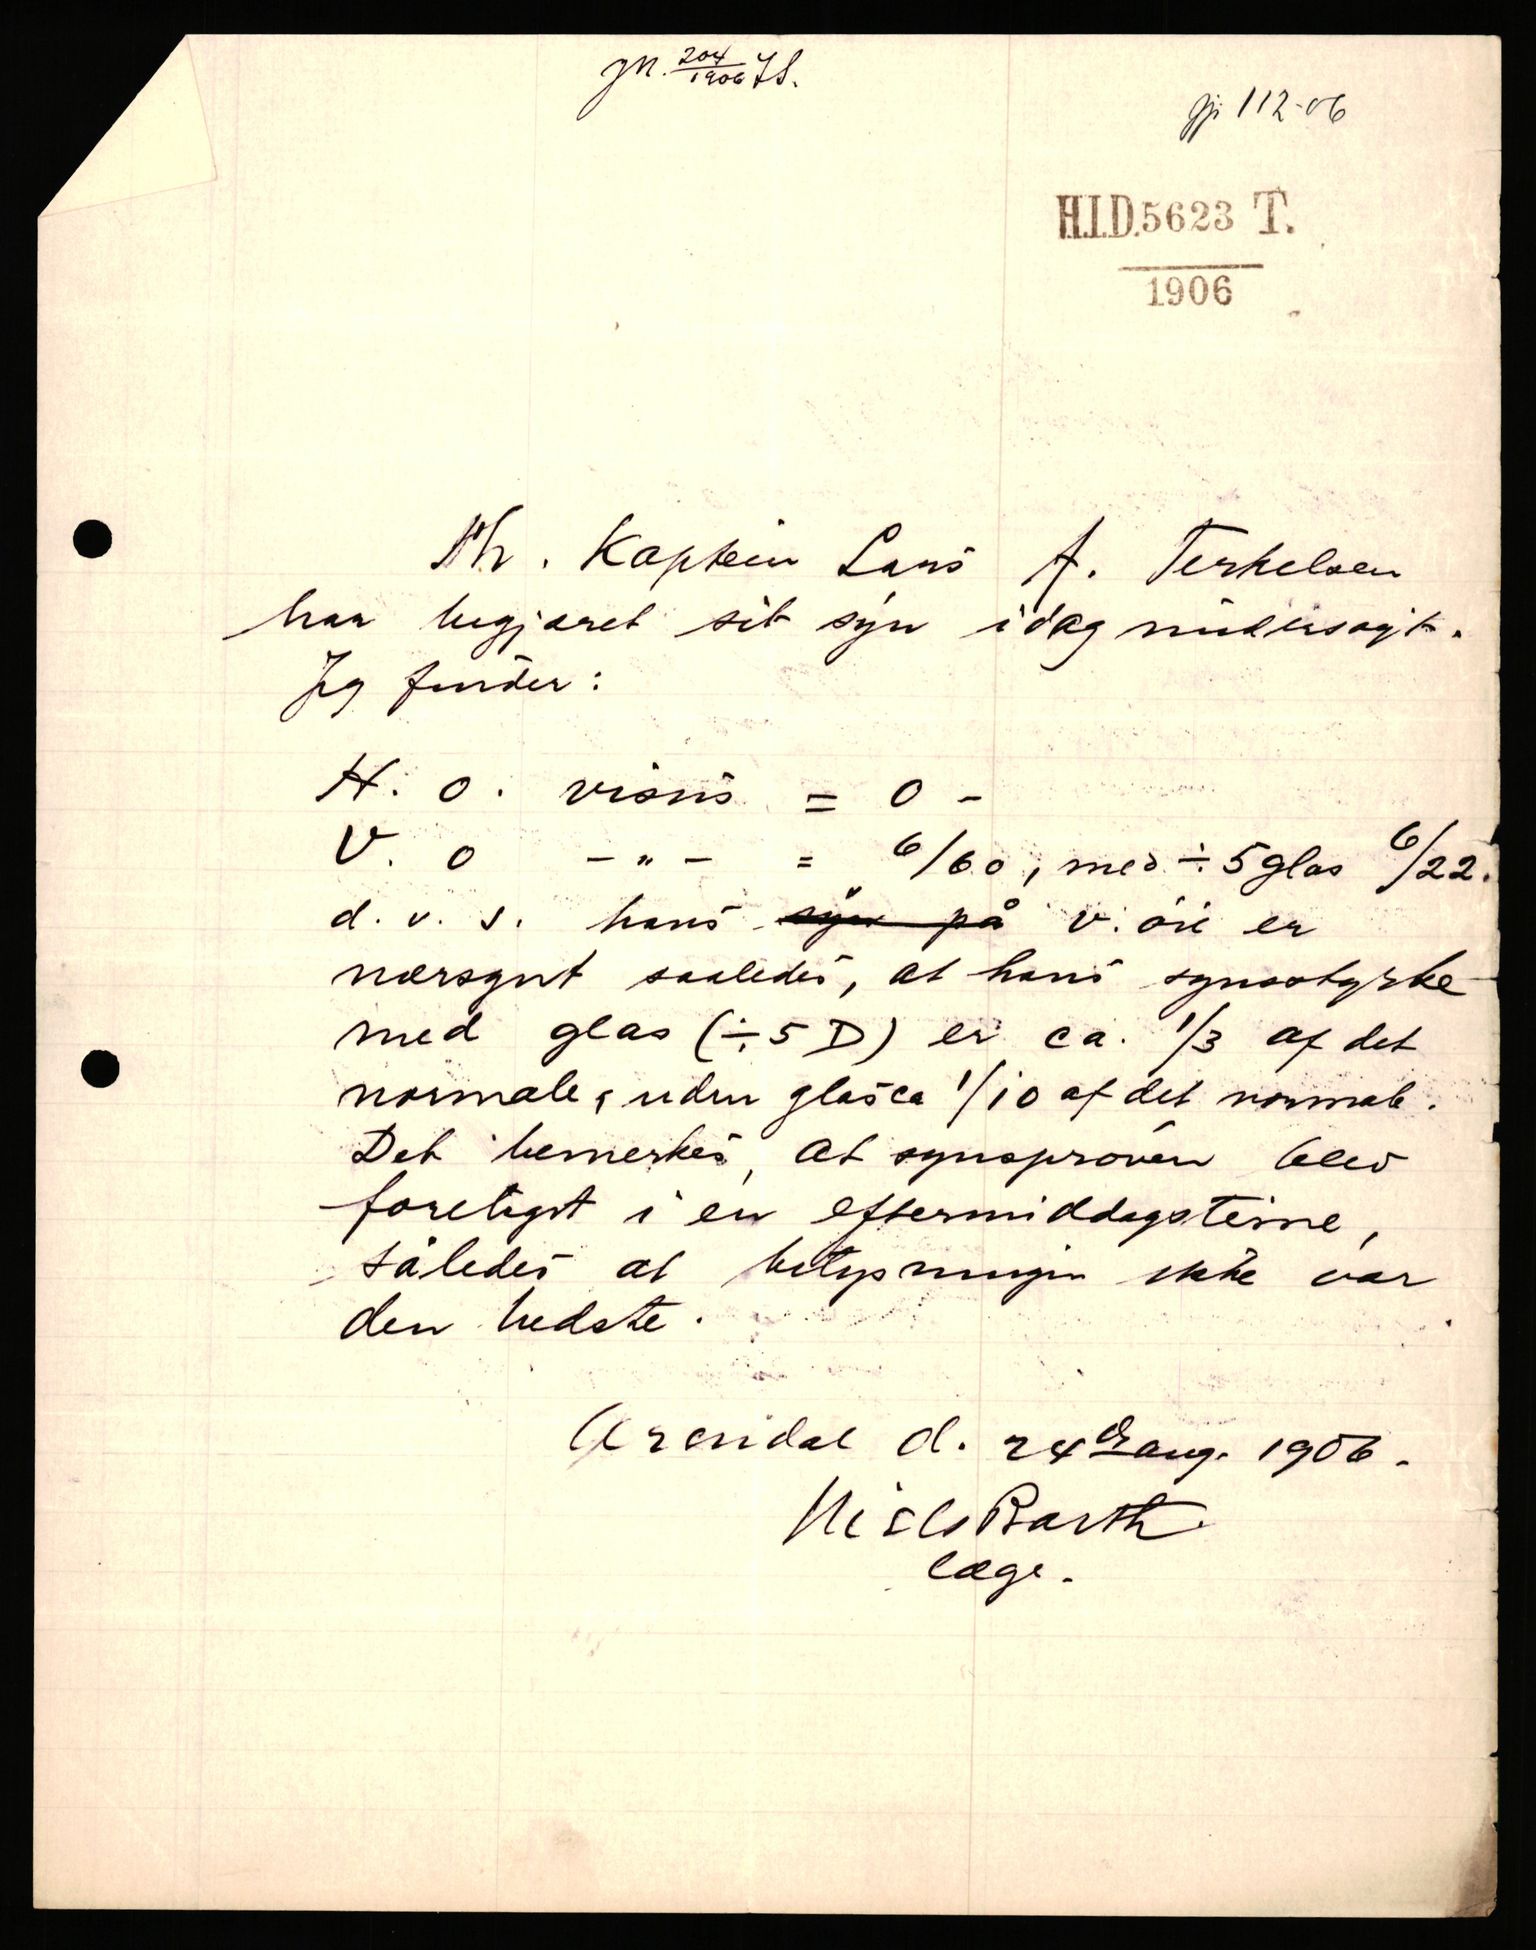 jn. 204/1906 I S.
jp 112-06
H.I.D. 5623 T.
1906
Hr. Kaptein Lars A. Terkelsen
har begjæret sit syn idag undersøgt.
Jeg finder:
H. o. visus = 0 -
V. o - " - = 6/60, med ÷ 5 glas 6/22.
d. v. s. hans syn på v. öie er
nærsynt saaledes, at hans synsstyrke
med glas (÷ 5 D) er ca. 1/3 af det
normale, uden glas ca 1/10 af det normale.
Det bemerkes, at synsprøven blev
foretaget i en eftermiddagstime,
således at belysningen ikke var
den bedste.
Arendal d. 24de aug. 1906.
Niels Barth
læge.